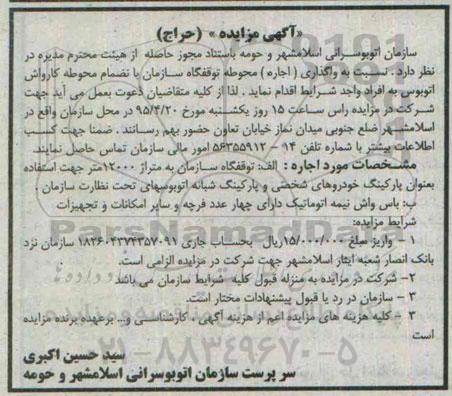 «آگهی مزایده» (حراج)
سازمان اتوبوسرانی اسلامشهر و حومه باستناد مجوز حاصله از هیئت محترم مدیره در
نظر دارد . نسبت به واگذاری ( اجاره ) محوطه توقفگاه سازمان با نضمام محوطه کارواش
اتوبوس به افراد واجد شرایط اقدام نماید . لذا از کلیه متقاضیان دعوت بعمل می آید جهت
شرکت در مزایده راس ساعت ۱۵ روز یکشنبه مورخ ۹۵/۴/۲۰ در محل سازمان واقع در
اسلامشهر ضلع جنوبی میدان نماز خیابان تعاون حضور بهم رسانند . ضمنا جهت کسب
اطلاعات بیشتر با شماره تلفن ۱۴ - ۵۶۳۵۵۹۱۲ امور مالی سازمان تماس حاصل نمایند.
مشخصات مورد اجاره : الف: توقفگاه سازمان به متراژ ۱۲۰۰۰متر جهت استفاده
بعنوان پارکینگ خودروهای شخصی و پارکینگ شبانه اتوبوسهای تحت نظارت سازمان .
ب: باس واش نیمه اتوماتیک دارای چهار عدد فرچه و سایر امکانات و تجهیزات
شرایط مزایده:
۱ - واریز مبلغ ۱۵/۰۰۰/۰۰۰ریال بحساب جاری ۱۸۲۶۰۴۳۷۴۳۵۷۰۹۱ سازمان نزد
بانک انصار شعبه ایثار اسلامشهر جهت شرکت در مزایده الزامی است.
۲- شرکت در مزایده به منزله قبول کلیه شرایط سازمان می باشد
۳ - سازمان در رد یا قبول پیشنهادات مختار است.
۳ - کلیه هزینه های مزایده اعم از هزینه آگهی ، کارشناسی و... برعهده برنده مزایده
است
سید حسین اکبری
سرپرست سازمان اتوبوسرانی اسلامشهر و حومه
ParsNamadData
۰۲۱-۸۸۳۴۹۶۷۰-۵